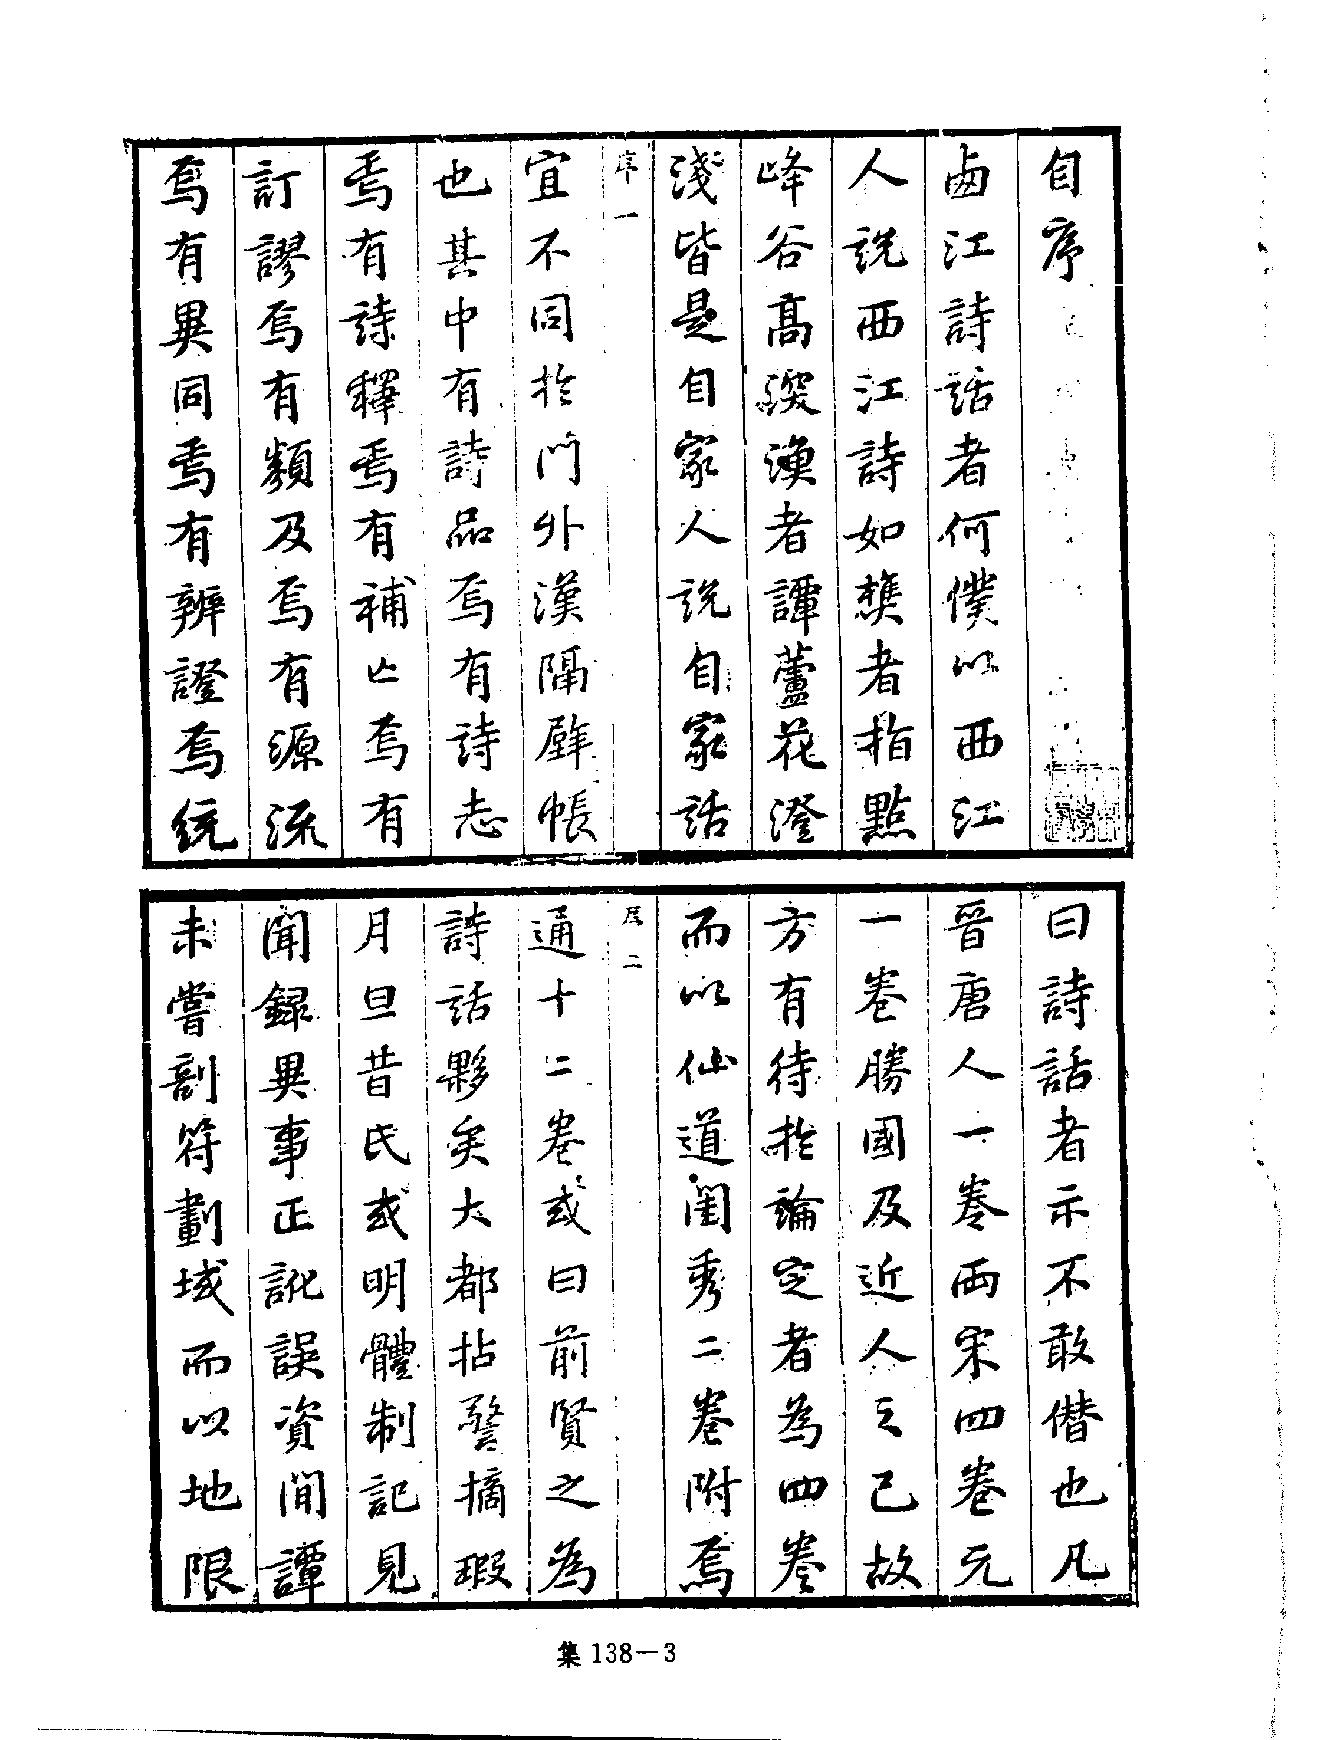 自序
鹵江詩話者何僕以西江
人説西江詩如樵者指點
峰谷高深漁者譚蘆花澄
淺皆是自家人説自家話
序一
宜不同於門外漢隔壁帳
也其中有詩品焉有詩志
焉有詩釋焉有補亡焉有
訂謬焉有類及焉有源流
焉有異同焉有辨證焉統
曰詩話者示不敢僭也凡
晉唐人一卷兩宋四卷元
一卷勝國及近人之已故
方有待於論定者為四卷
而以仙道閨秀二卷附焉
序二
通十二卷或曰前賢之為
詩話夥矣大都拈警摘瑕
月旦昔氏或明體制記見
聞録異事正訛誤資閒譚
未嘗剖符劃域而以地限
集138—3